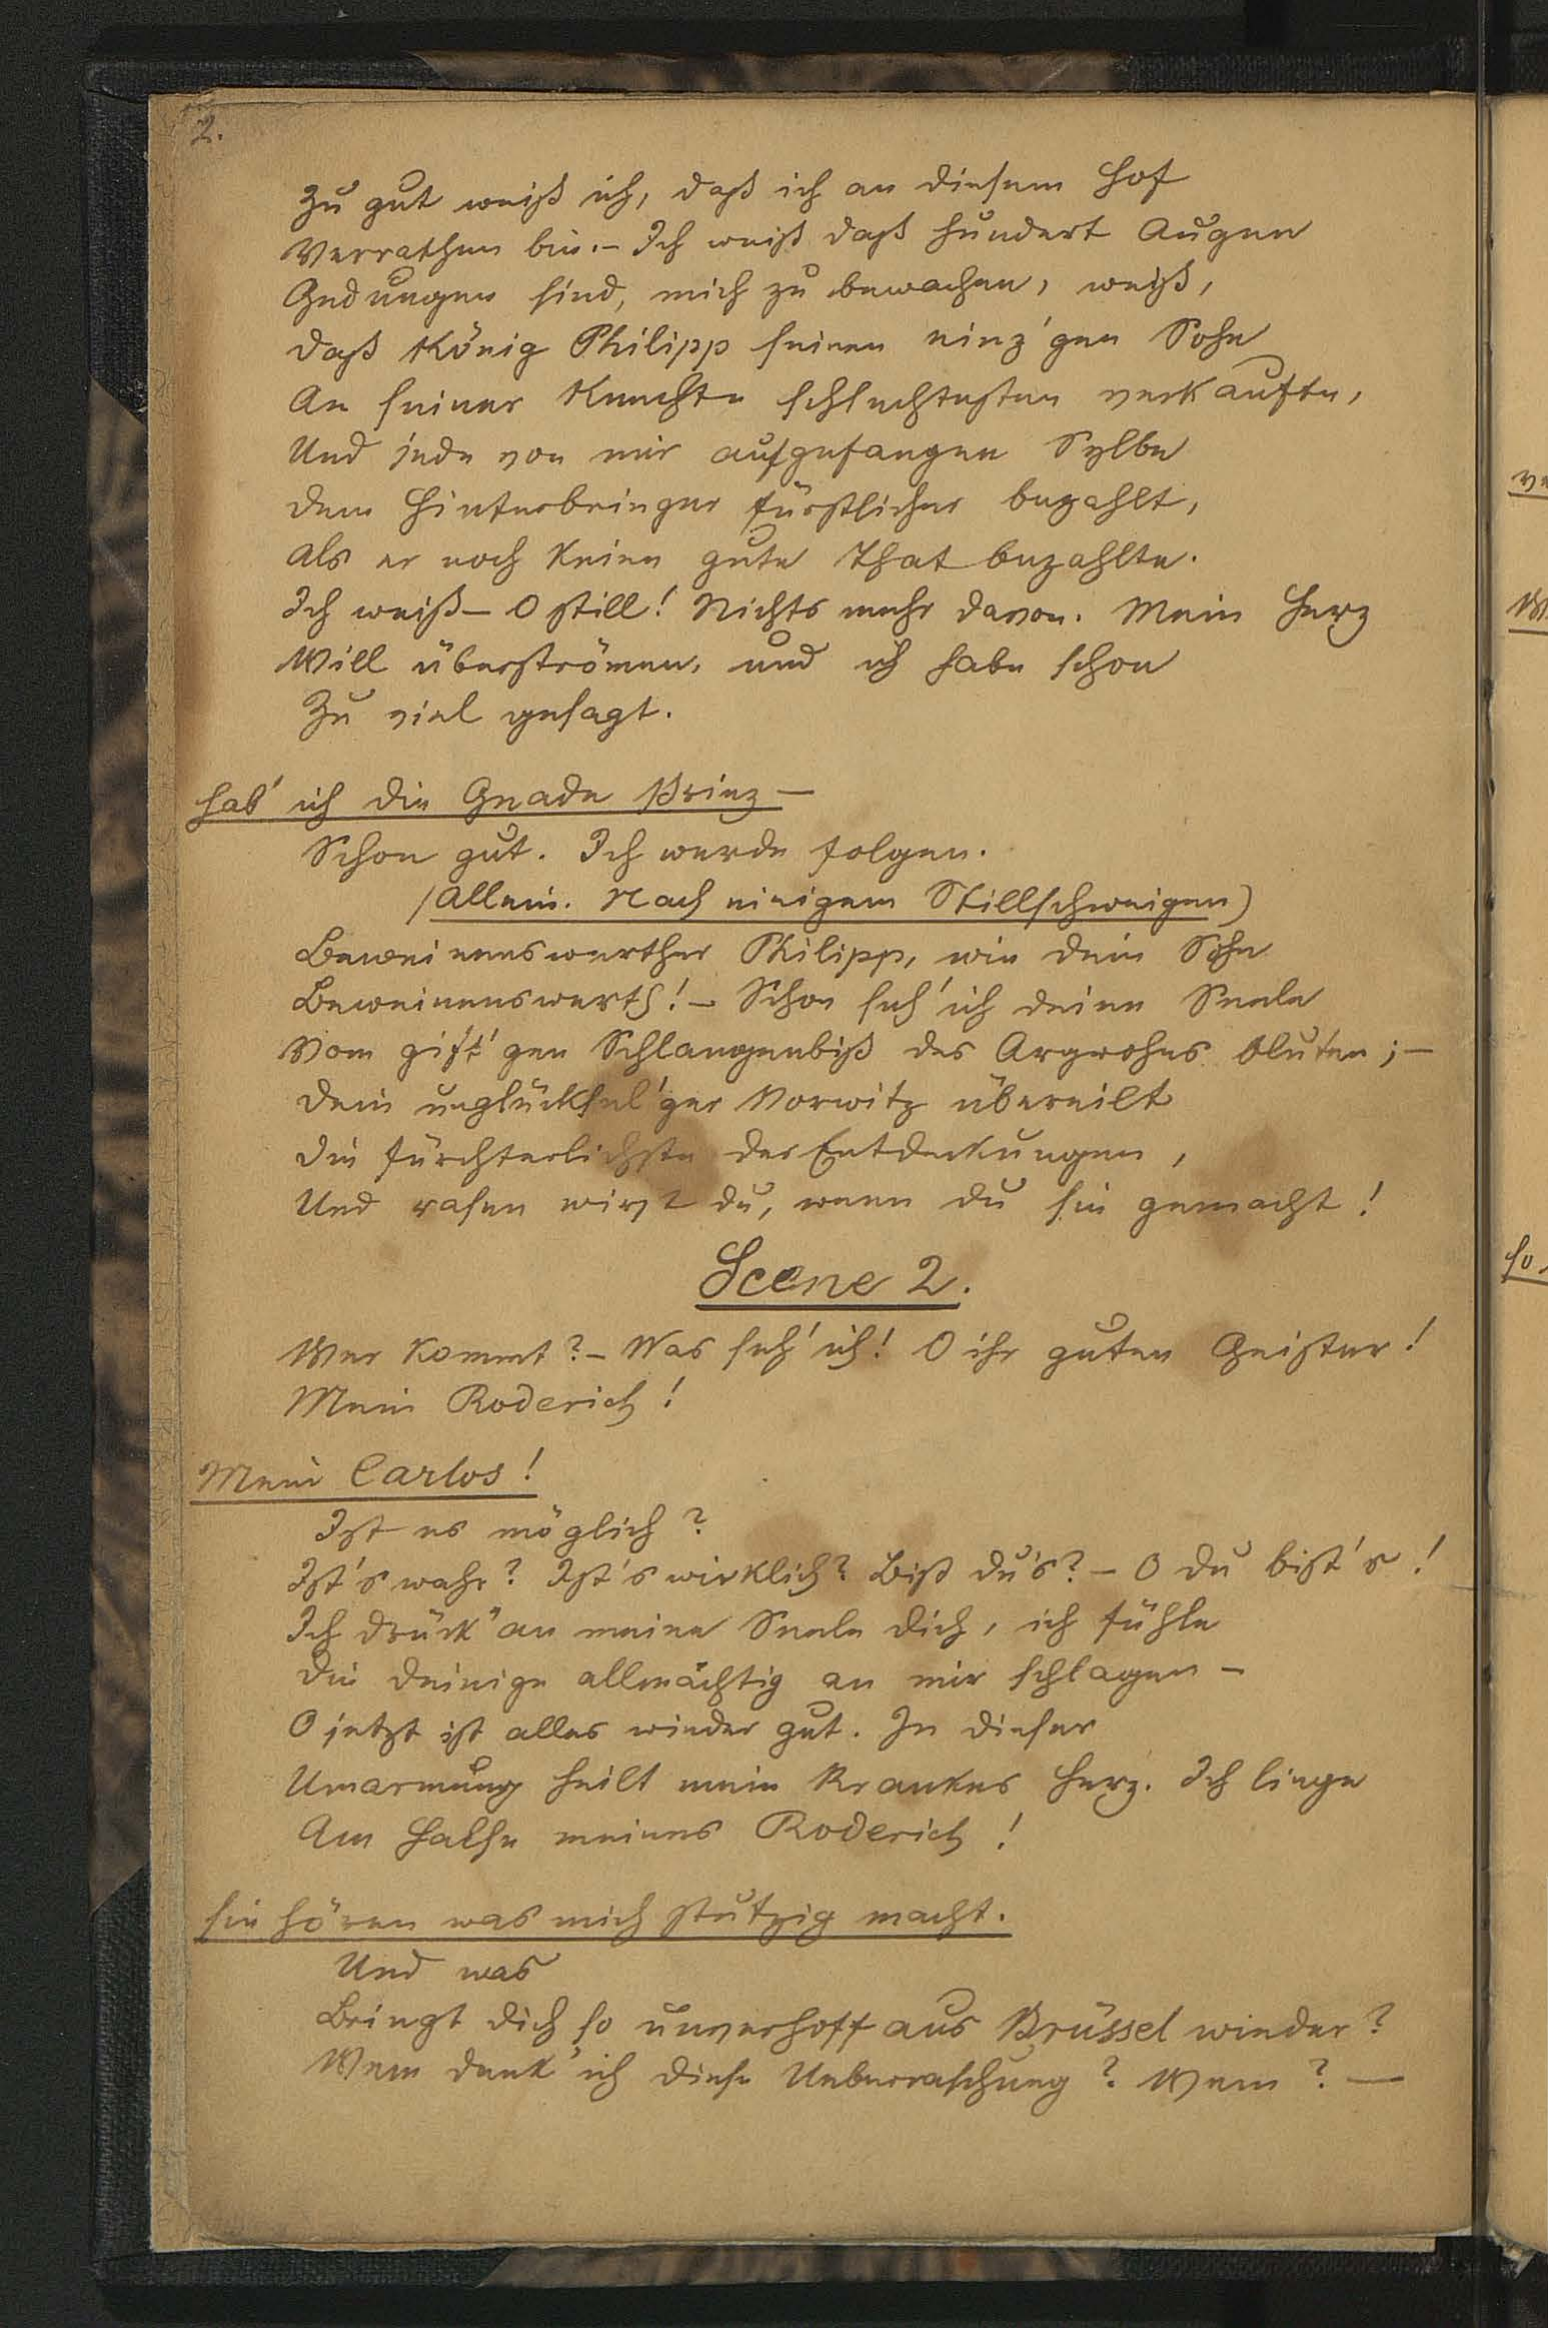 2.
Zu gut weiß ich, daß ich an diesem Hof
Verrathen bin. - Ich weiß daß hundert Augen
Gedungen sind, mich zu bewachen, weiß,
Daß König Philipp seinen einz'gen Sohn
An seiner Knechte schlechtesten verkaufte,
Und jede von mir aufgefangen Sylbe
Dem Hinterbringer fürstlicher bezahlt,
Als er noch keine gute That bezahlte.
Ich weiß - O still! Nichts mehr davon. Mein Herz
Will überströmen, und ich habe schon
Zu viel gesagt.
Hab' ich die Gnade Prinz -
Schon gut. Ich werde folgen.
(Allein. Nach einigem Stillschweigen)
Beweinenswerther Philipp, wie dein Sohn
Beweinenswerth! - Schon seh' ich deine Seele
Vom gift'gen Schlangenbiß des Argwohns bluten; -
Dein unglücksel'ger Vorwitz übereilt
Die fürchterlichste der Entdeckungen,
Und rasen wirst du, wenn du sie gemacht!
Scene 2.
Wer kommt? - Was seh' ich! O ihr guten Geister!
Mein Roderich!
Mein Carlos!
Ist es möglich?
Ist's wahr? Ist's wirklich? Bist du's? - O du bist's!
Ich drück' an meine Seele dich, ich fühle
Die deinige allmächtig an mir schlagen -
O jetzt ist alles wieder gut. In dieser
Umarmung heilt mein krankes Herz. Ich liege
Am Halse meines Roderich!
Sie hören was mich stutzig macht.
Und was
Bringt dich so unverhofft aus Brüssel wieder?
Wem dank' ich diese Ueberraschung? Wem? -
ve
W
So